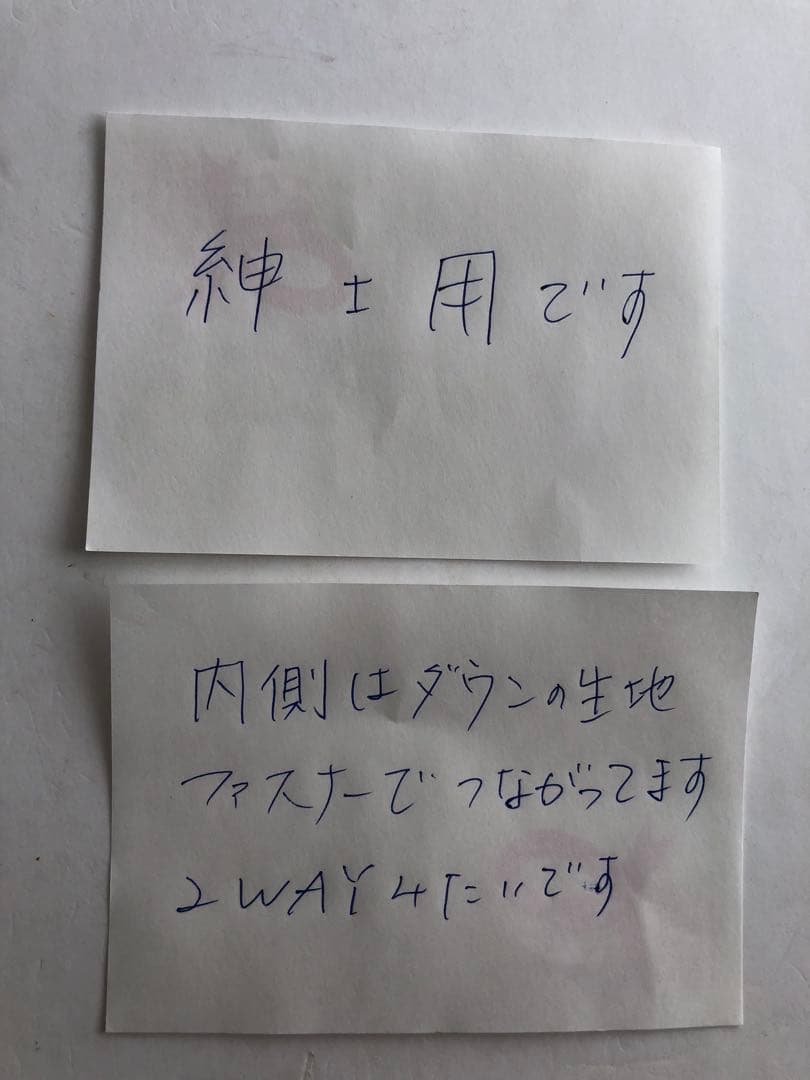 紳士用です
内側はダウンの生地
ファスナーでつながってます
2WAYみたいです